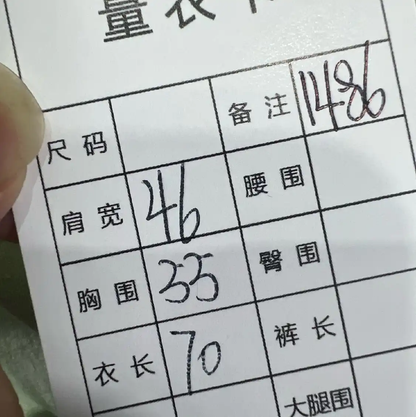 量衣
尺码 备注 1486
肩宽 46 腰围
胸围 55 臀围
衣长 70 裤长
大腿围